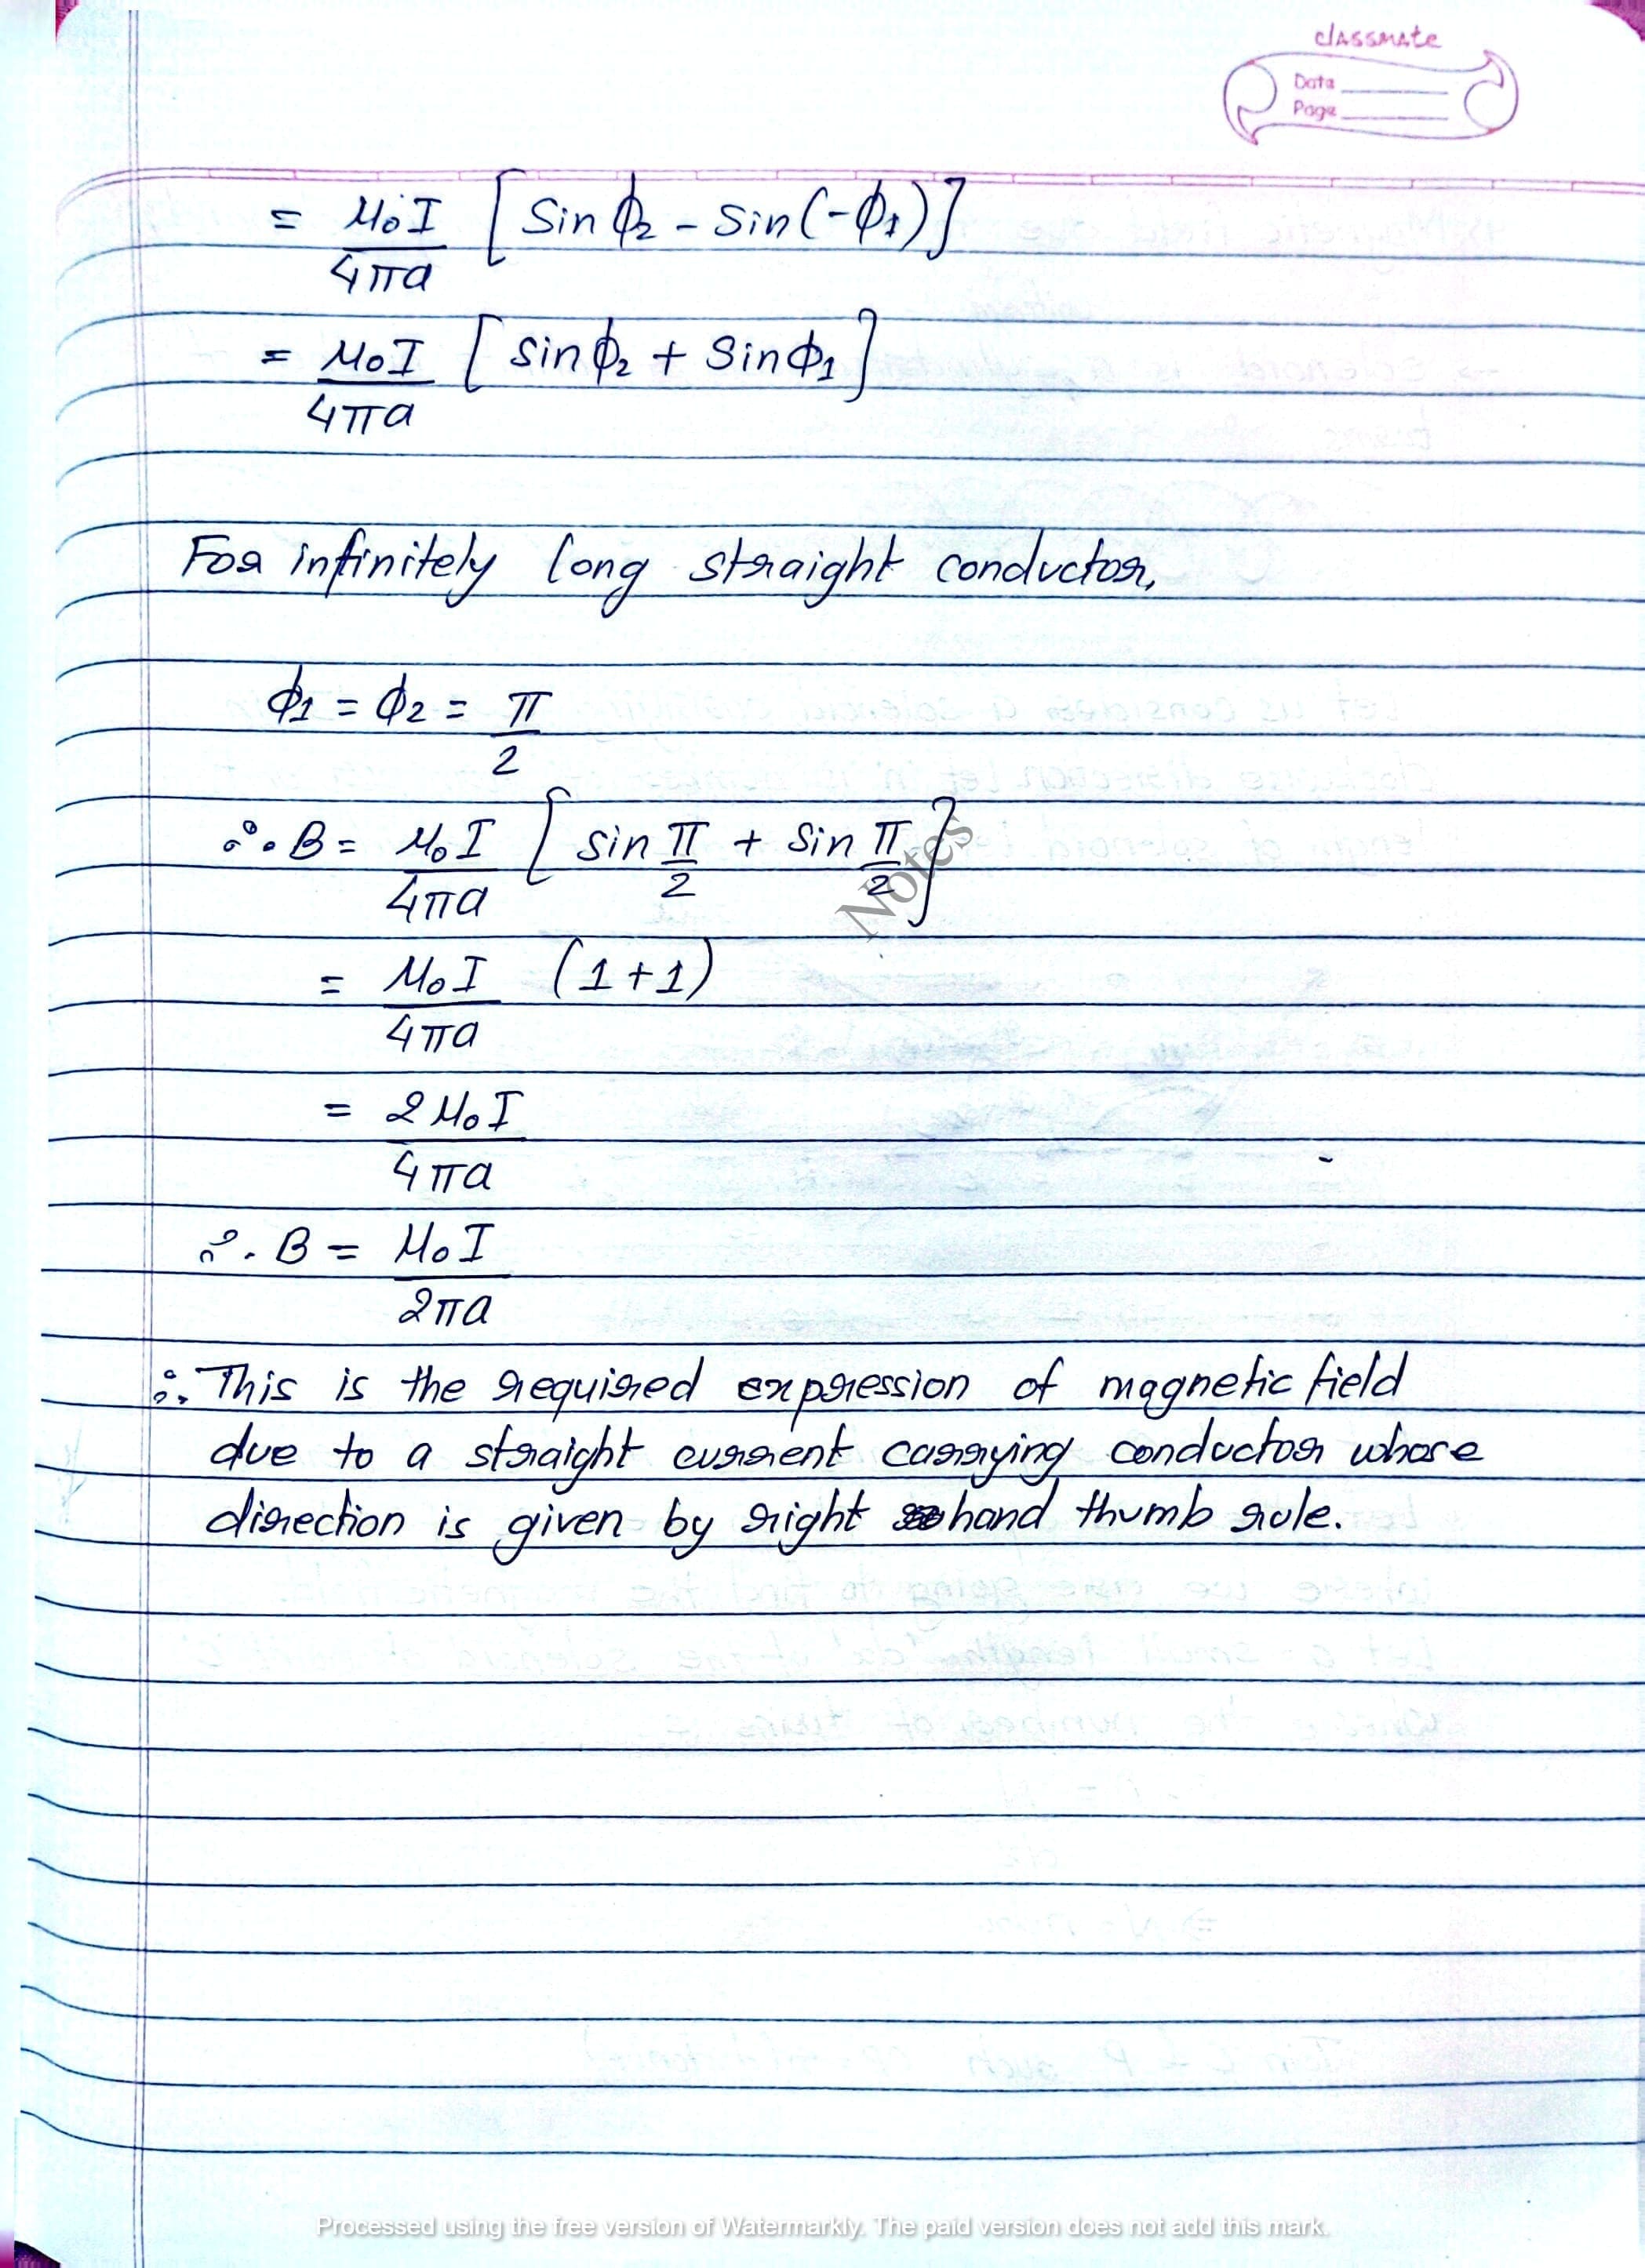 classmate
Date
Page
= μ₀I/4πa [Sin ϕ₂ - Sin(-ϕ₁)]
= μ₀I/4πa [sin ϕ₂ + Sin ϕ₁]
For infinitely long straight conductor,
ϕ₁ = ϕ₂ = π/2
∴ B = μ₀I/4πa [sin π/2 + sin π/2]
Notes
= μ₀I/4πa (1+1)
= 2μ₀I/4πa
∴ B = μ₀I/2πa
∴ This is the required expression of magnetic field
due to a straight current carrying conductor whose
direction is given by right hand thumb rule.
Processed using the free version of Watermarkly. The paid version does not add this mark.